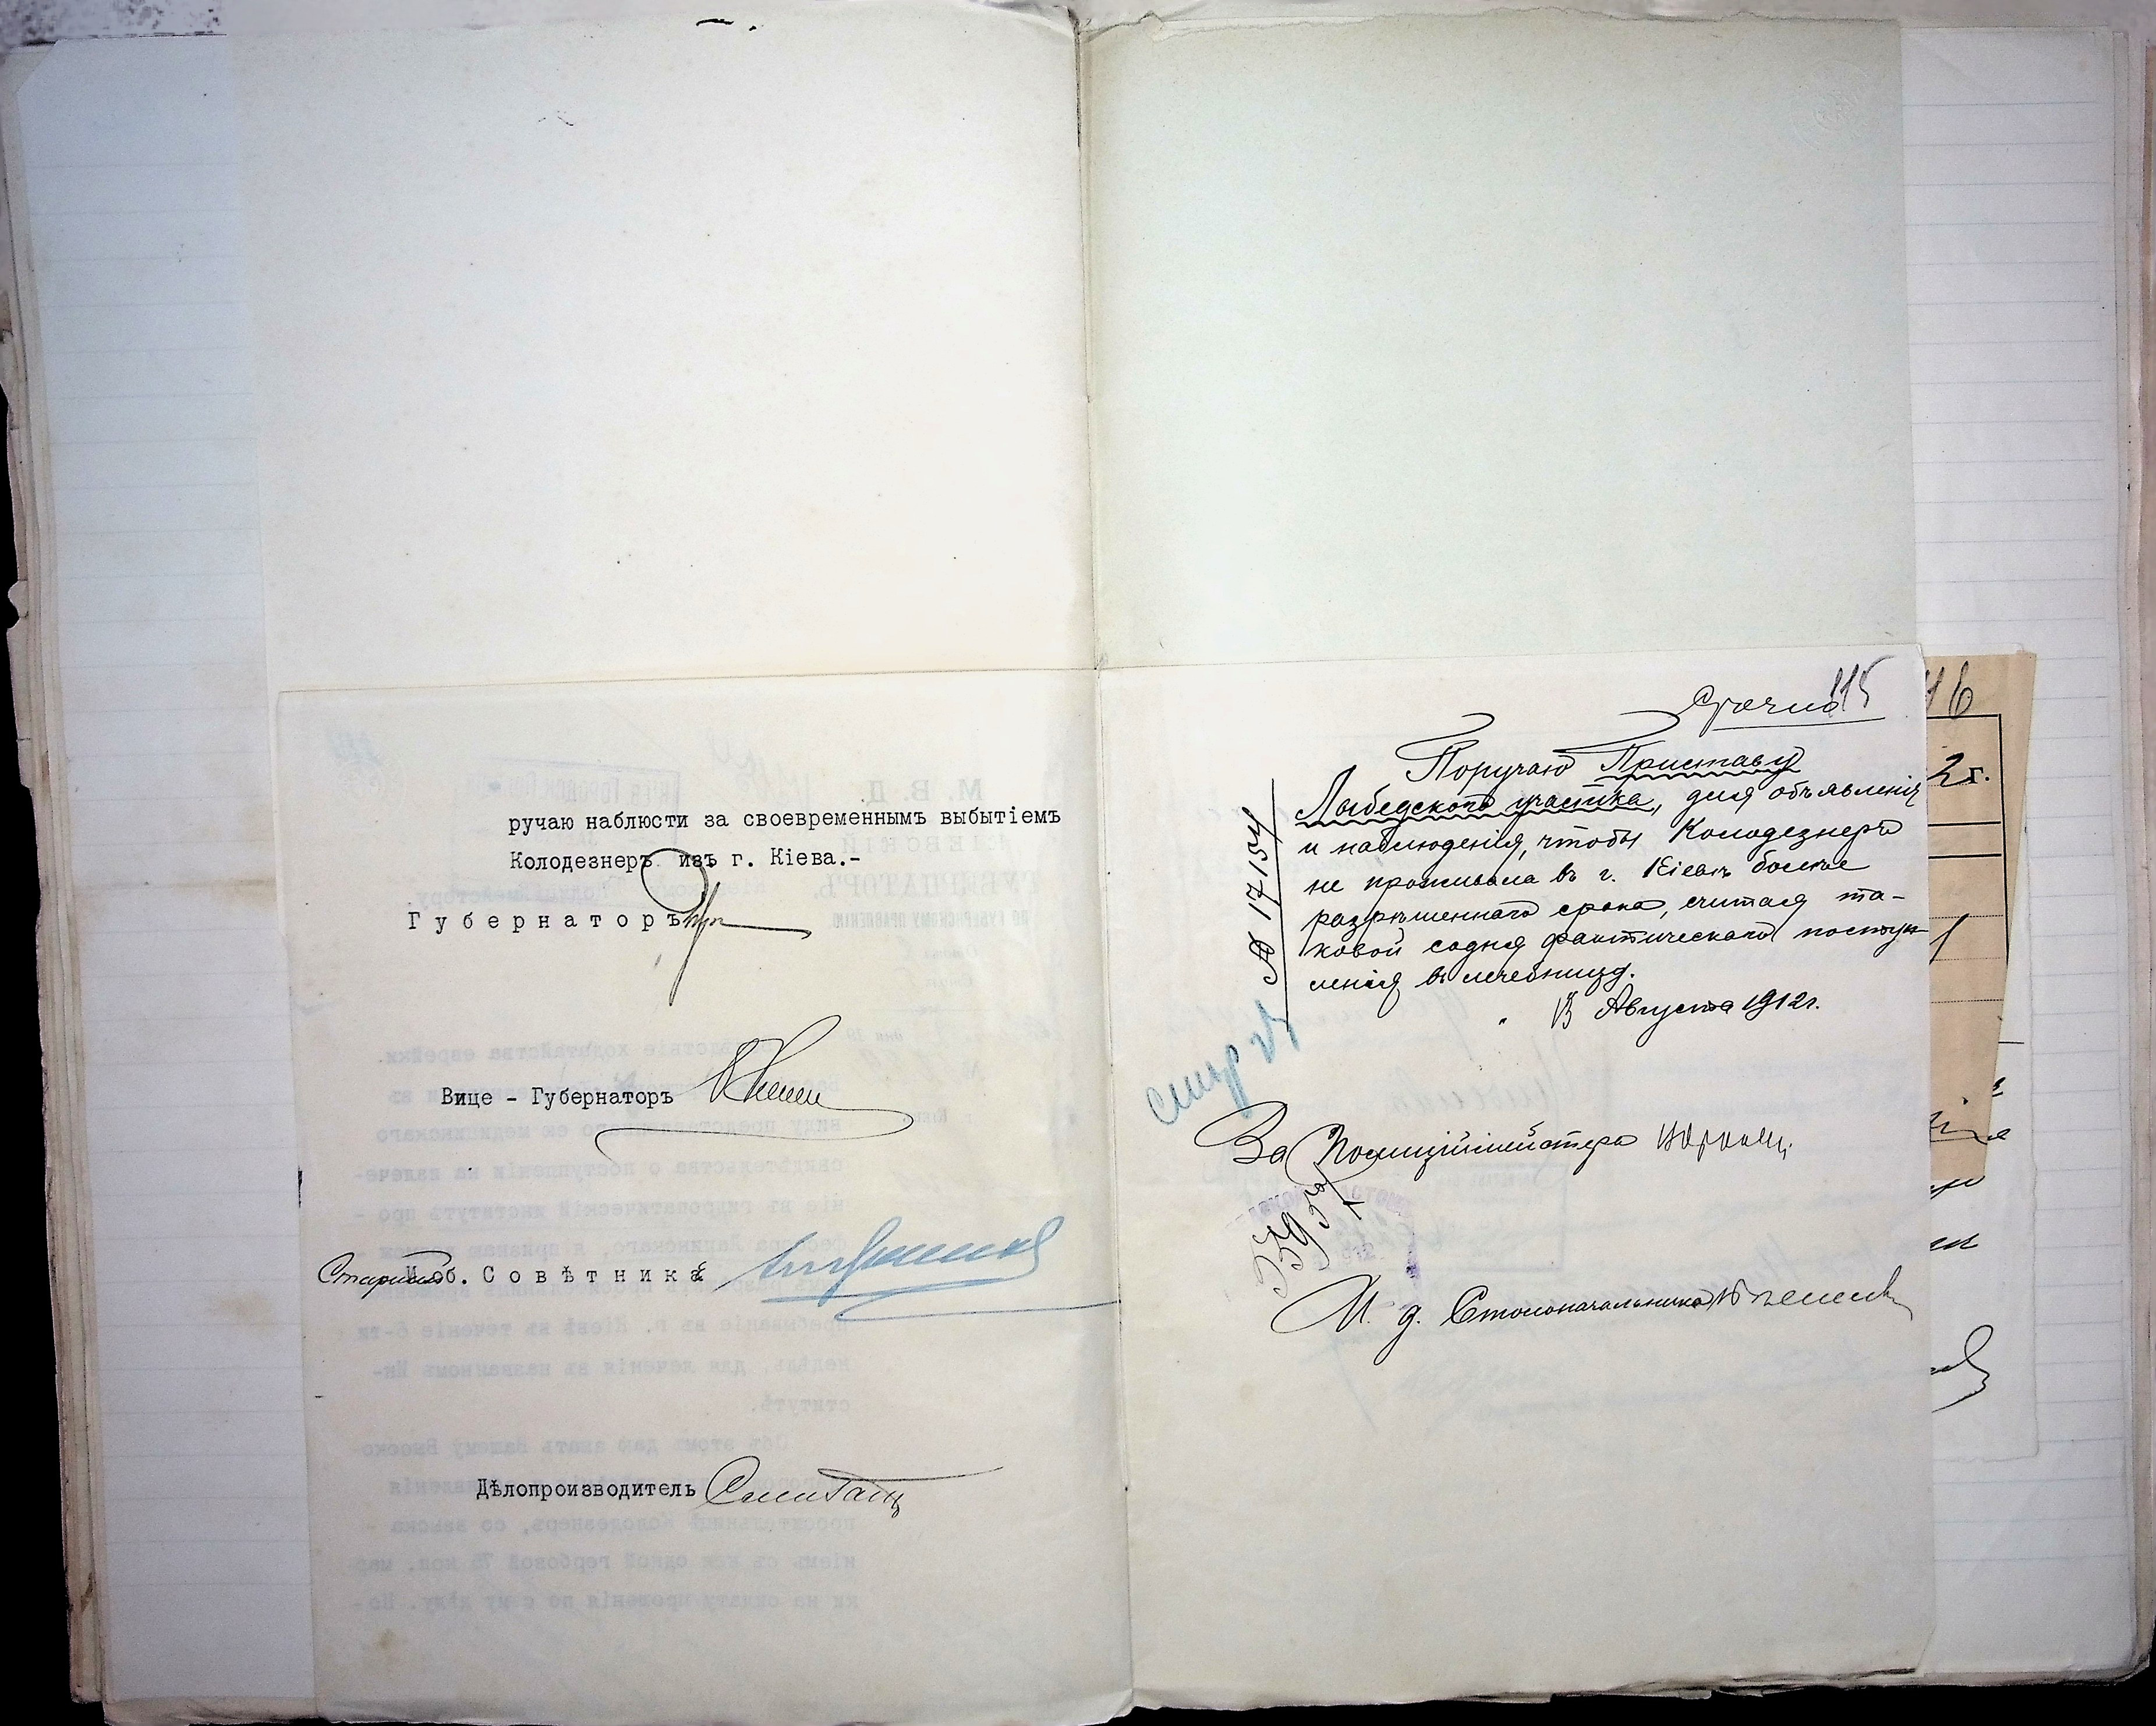 ручаю наблюсти за своевременнымъ выбытіемъ
Колодезнеръ изъ г. Кіева.-
Губернаторъ
Вице - Губернаторъ
Старшій
И об. Совѣтника
Дѣлопроизводитель
Срочно
115
Поручаю Приставу
Лыбедскаго участка, для объявленія
и наблюденія, чтобы Колодезнеръ
не проживала въ г. Кіевѣ болѣе
разрѣшеннаго срока, считая та-
ковой со дня фактическаго поступ-
ленія въ лечебницу.
13 Августа 1912 г.
№ 17154
За Полиціймейстера
И. д. Столоначальника
116
2 г.